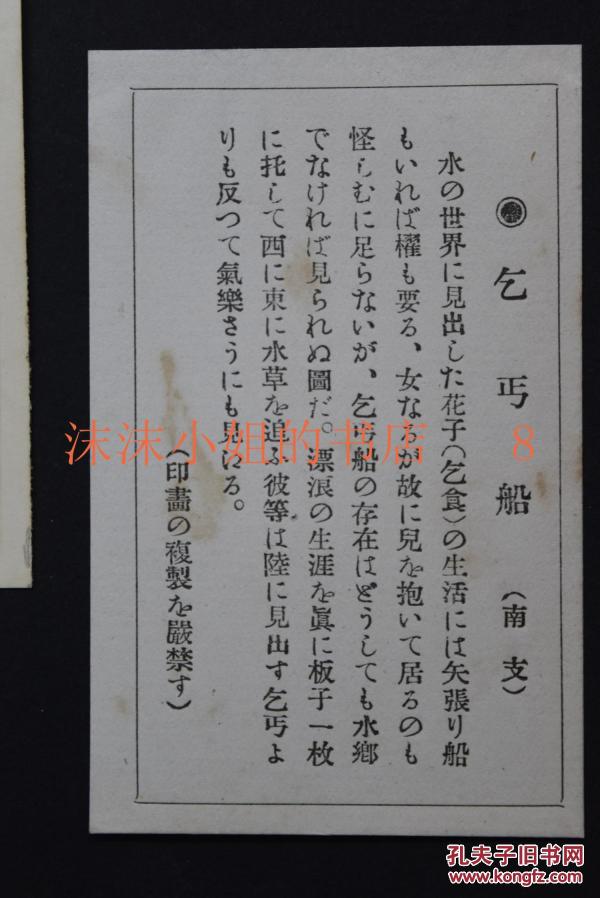 乞丐船（南支）
水の世界に見出した花子（乞食）の生活には矢張り船
もいれば櫂も要る、女なるが故に兒を抱いて居るのも
怪しむに足らないが、乞丐船の存在はどうしても水鄕
でなければ見られぬ圖だ。漂浪の生涯を眞に板子一枚
に托して西に東に水草を追ふ彼等は陸に見出す乞丐よ
りも反つて氣樂さうにも見ける。
（印畫の複製を嚴禁す）
沫沫小姐的书店 8
孔夫子旧书网
kongfz.com